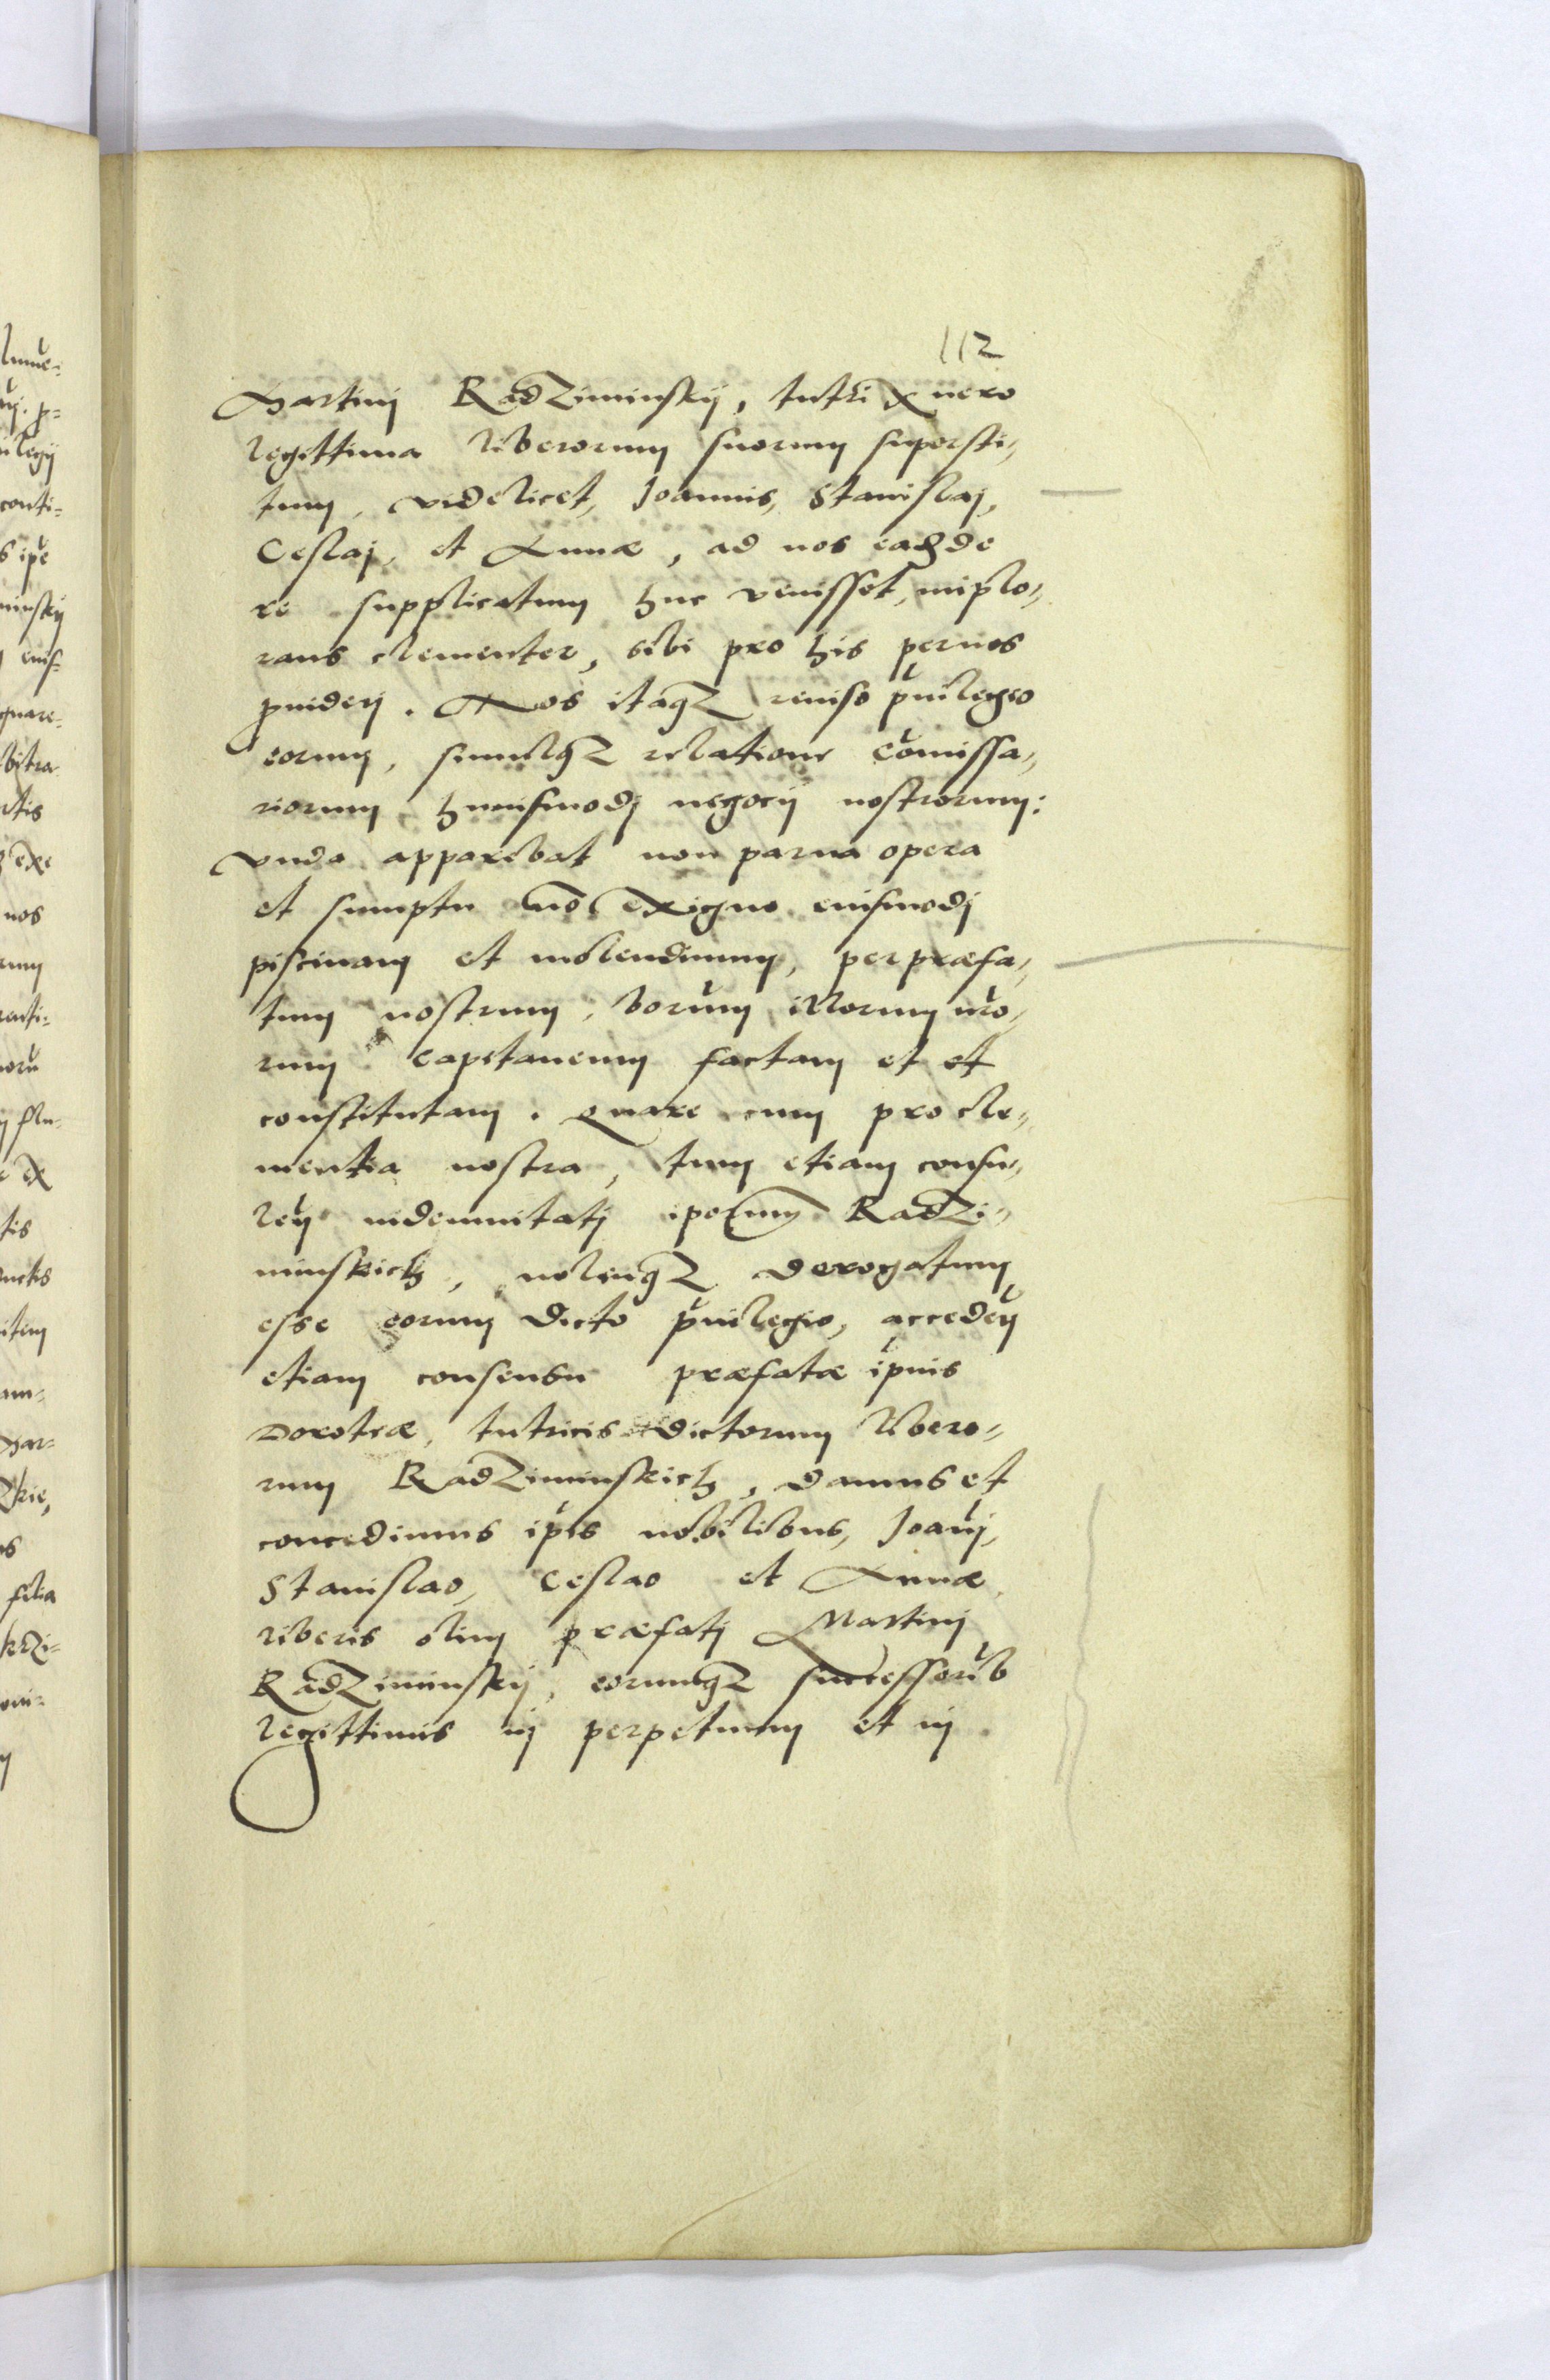 112
Martinj Radziminskÿ, tutri x uero
legittima liberorum suorum supersti„
tum, videlicet, Joannis, Stanislaj,
Ceslaj, et Annæ, ad nos eadē de
re supplicatum huc venisset, implo„
rans clementer, sibi pro his per nos
ꝓuiderj. Nos itaqꝫ reuiso pr̃uilegio
eorum, simulqꝫ relatione com̃issa„
riorum huiusmodj negocÿ nostrorum:
vnde apparebat non parua opera
et sumptu nō exiguo eiusmodj
piscinam et molendinum, per præfa„
tum nostrum, bonor̃um illorum nr̃o„
rum Capitaneum factam et et
constitutam. Quare cum pro cle„
mentia nostra, tum etiam consu„
len̄ indemnitatj ipsorum Radzi„
minskich, nolen̄qꝫ derogatum
esse eorum dicto pr̃uilegio, acceden̄
etiam consensu præfatæ ip̃ius
Doroteæ, tutricis dictorum libero„
rum Radziminskich, damus et
concedimus ip̃is nobilibus, Joan̄j,
Stanislao, Ceslao et Annæ
liberis olim præfatj Martinj
Radziminskÿ, eorumqꝫ successorib
legittimis in perpetuum et in